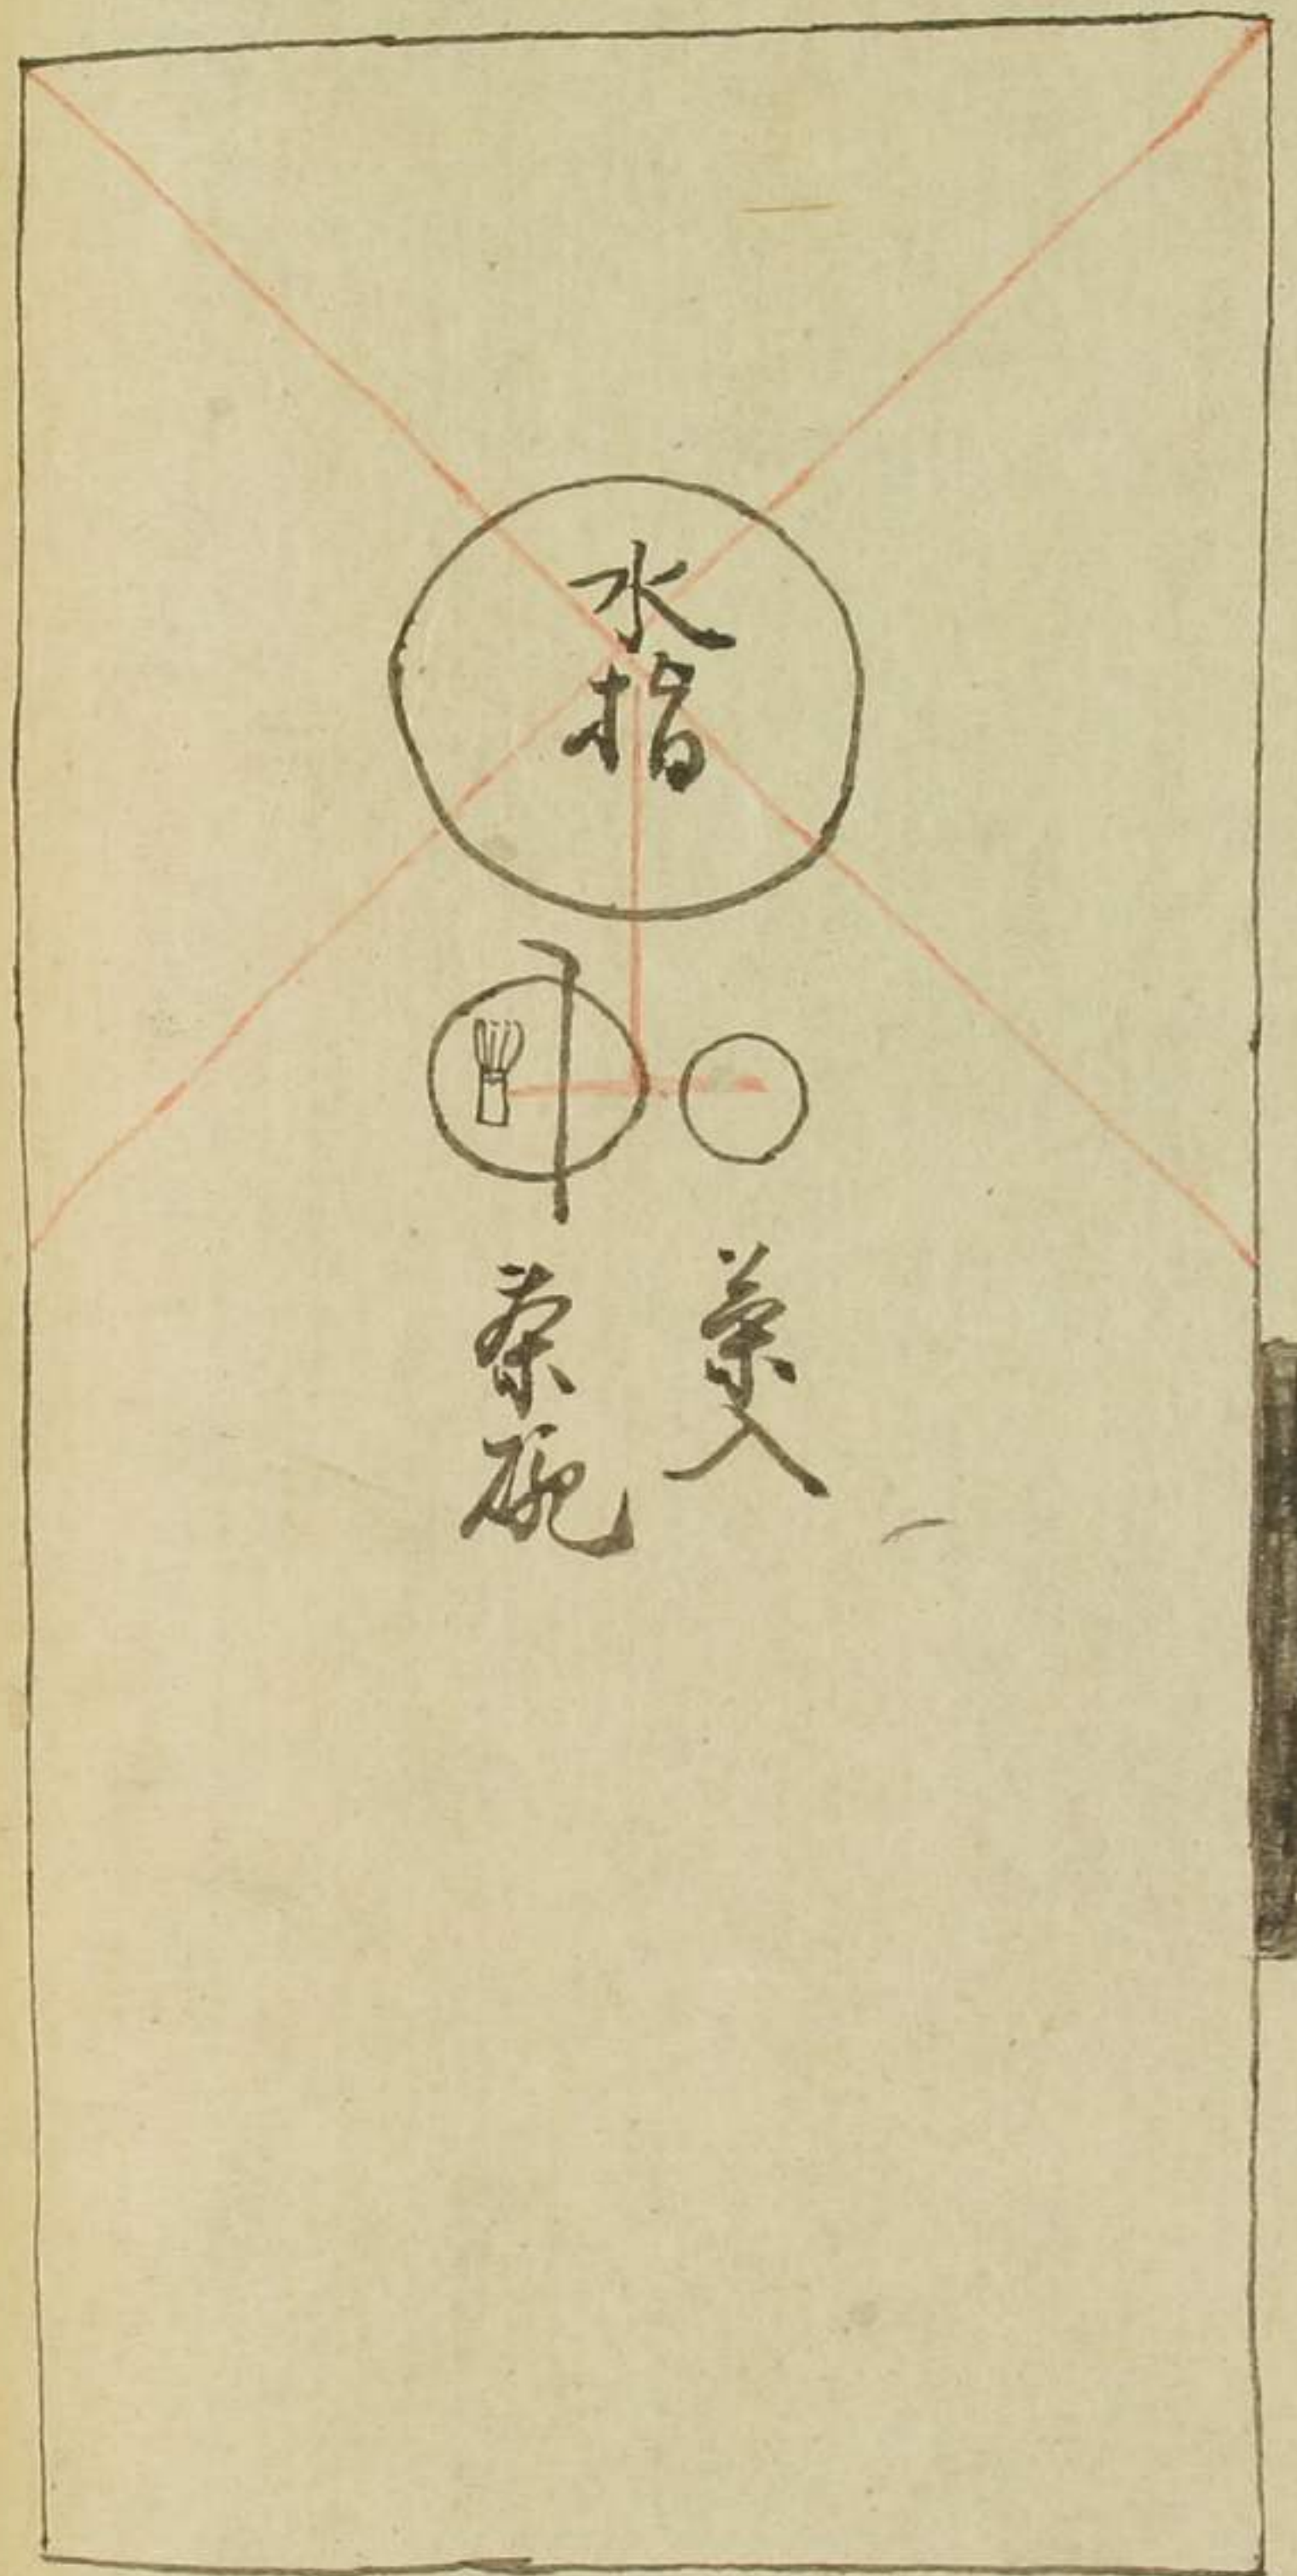 水指
茶入
茶碗